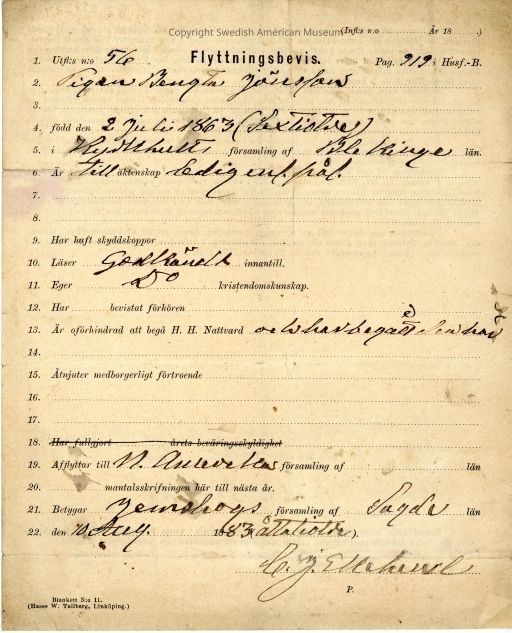 Copyright Swedish American Museum
(Infl: s n:o År 18 .)
1. Utfl: s n:o 56 Flyttningsbevis. Pag. 919 i Husf.-B.
2. Pigan Bengta Jönsson
3.
4. född den 2 Juli 1863 (Sextiotre)
5. i församling af Blekinge län.
6. Är till äktenskap ledig enl. påf.
7.
8.
9. Har haft skyddskoppor
10. Läser Godkändt innantill.
11. Eger Do kristendomskunskap.
12. Har bevistat förhören
13. Är oförhindrad att begå H. H. Nattvard och har begått den här
14.
15. Åtnjuter medborgerligt förtroende
16.
17.
18. Har fullgjort årets beväringsskyldighet
19. Afflyttar till N. Amerika församling af län
20. mantalsskrifningen här till nästa år.
21. Betygar församling af län
22. den 10 Aug. 1883 (åttiotre).
P.
Blankett N:o 11.
(Hasse W. Tullberg, Linköping.)